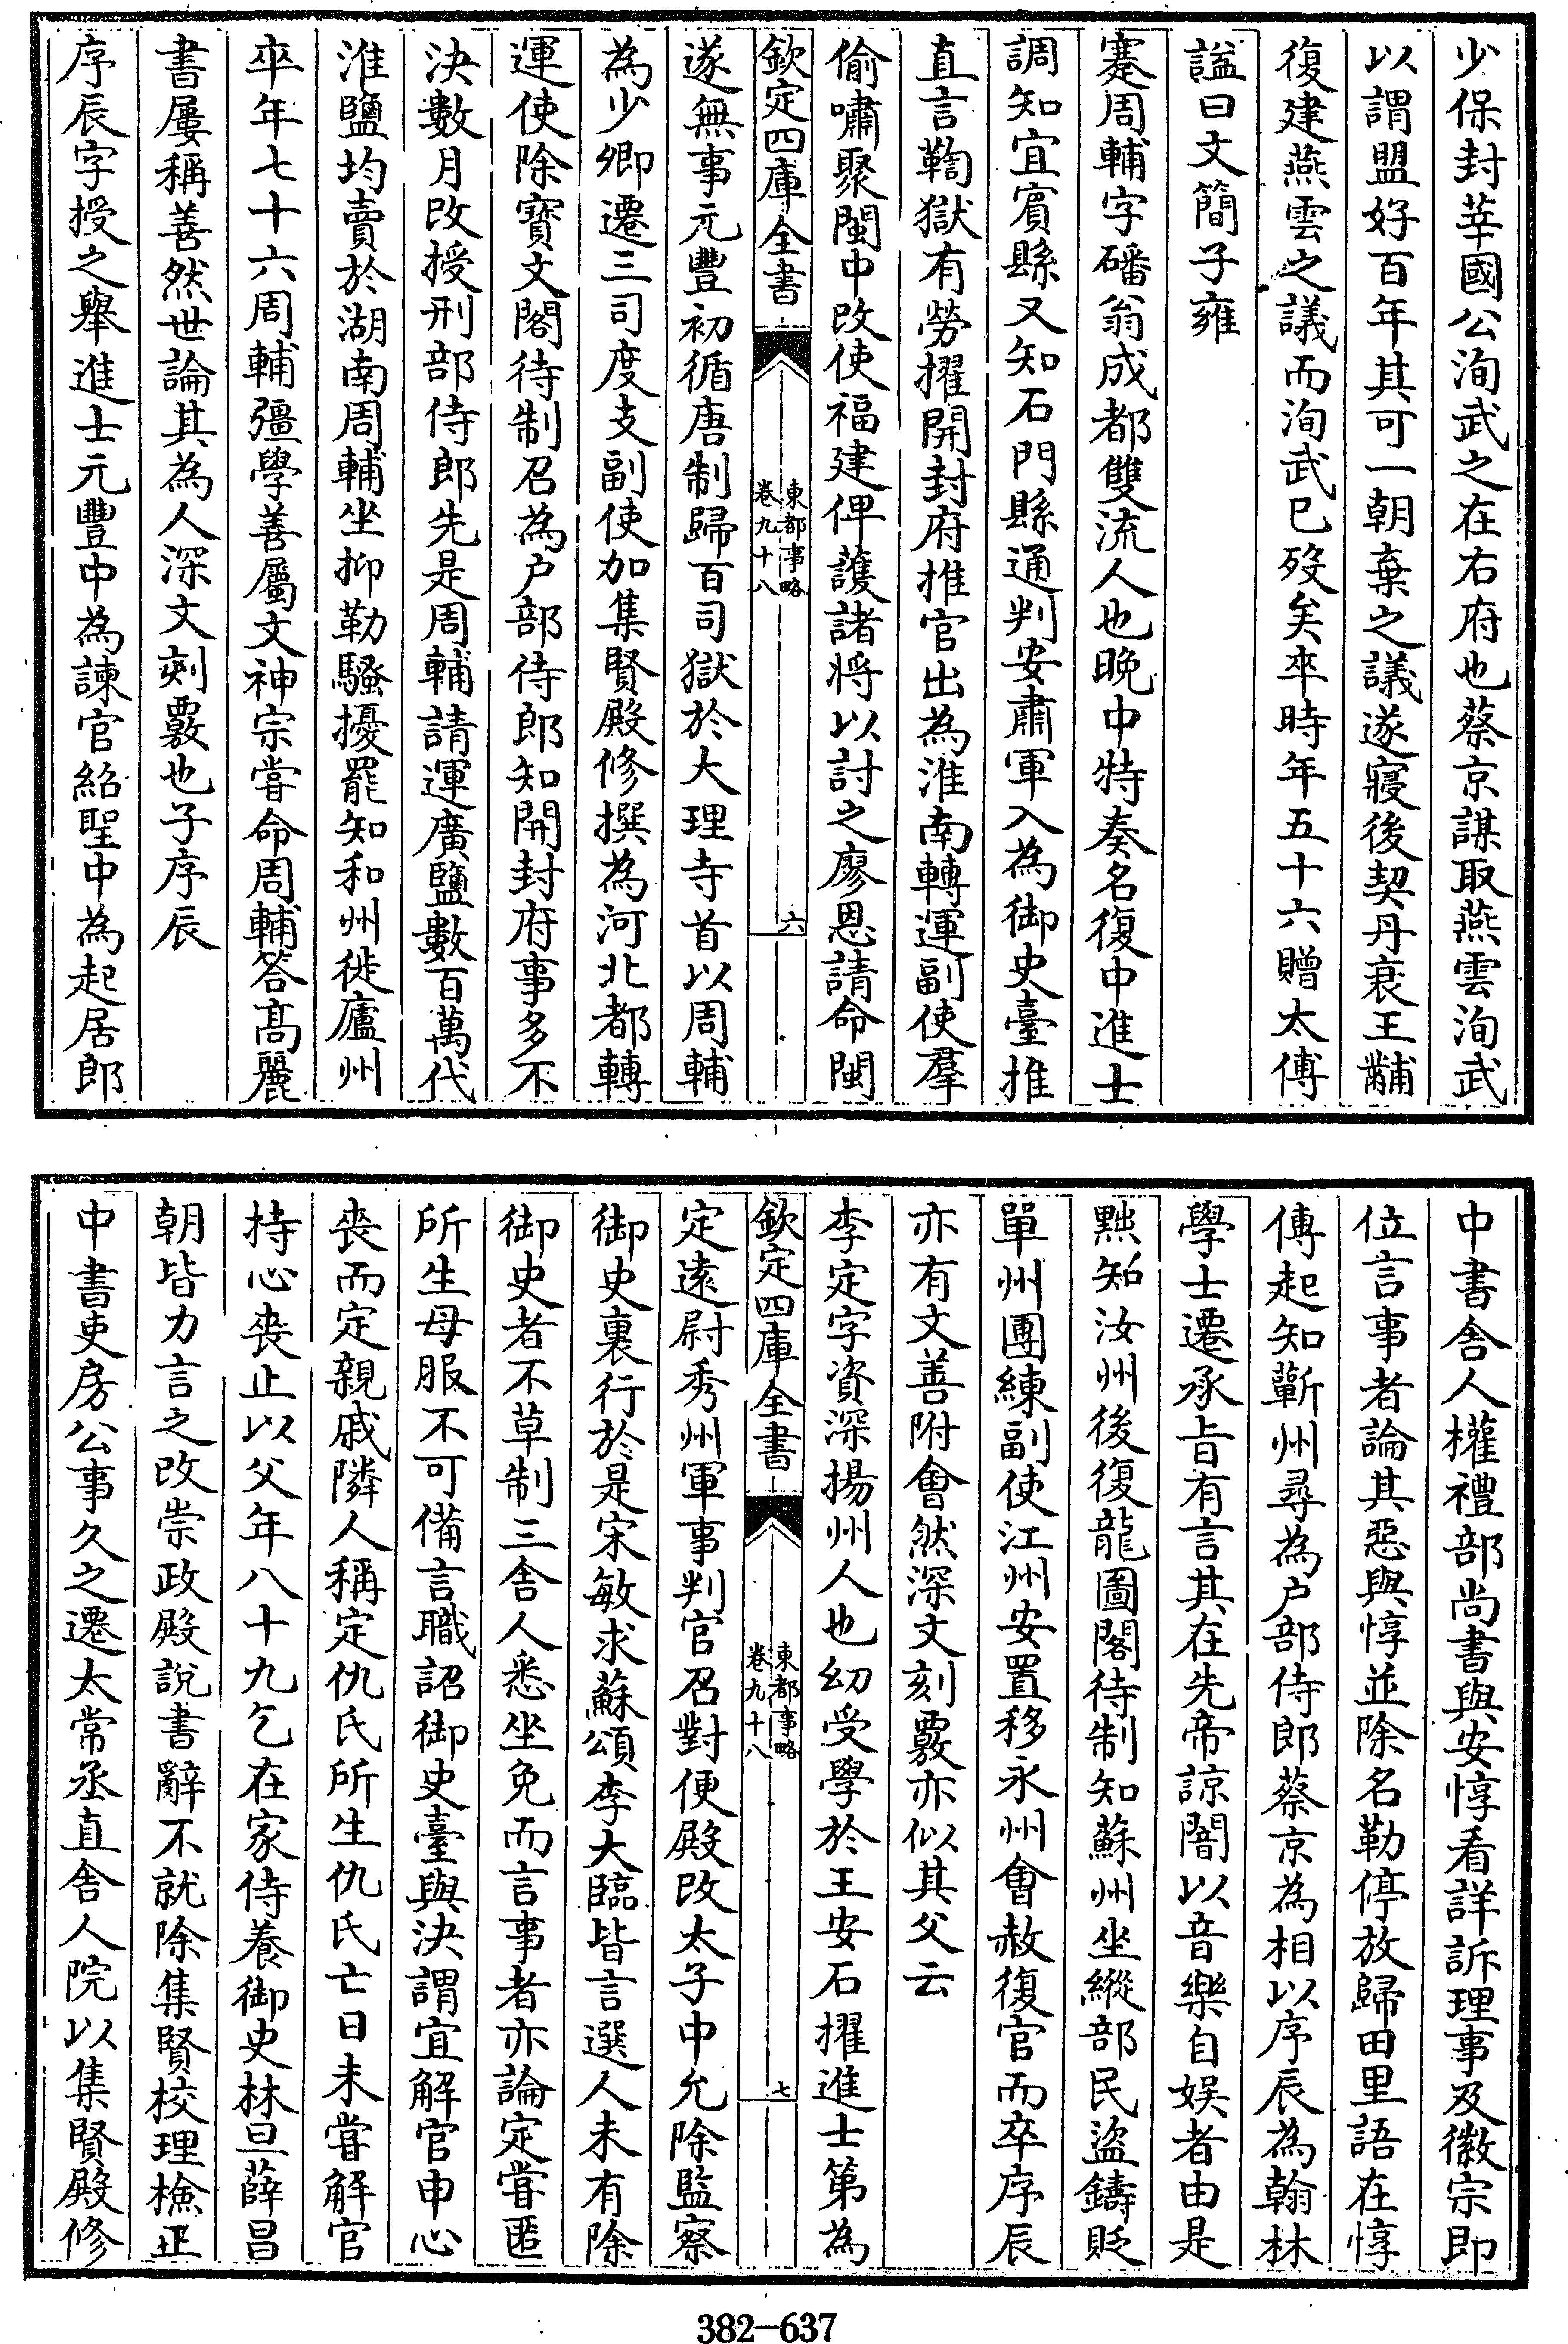 少保封莘國公洵武之在右府也蔡京謀取燕雲洵武
以謂盟好百年其可一朝棄之議遂寢後契丹衰王黼
復建燕雲之議而洵武已歿矣卒時年五十六贈太傅
諡曰文簡子雍
蹇周輔字磻翁成都雙流人也晚中特奏名復中進士
調知宜賓縣又知石門縣通判安肅軍入為御史臺推
直言鞫獄有勞擢開封府推官出為淮南轉運副使羣
偷嘯聚閩中改使福建俾護諸將以討之廖恩請命閩
欽定四庫全書
東都事略
卷九十八
六
遂無事元豐初循唐制歸百司獄於大理寺首以周輔
為少卿遷三司度支副使加集賢殿修撰為河北都轉
運使除寳文閣待制召為户部侍郎知開封府事多不
決數月改授刑部侍郎先是周輔請運廣鹽數百萬代
淮鹽均賣於湖南周輔坐抑勒騷擾罷知和州徙廬州
卒年七十六周輔彊學善屬文神宗嘗命周輔答髙麗
書屢稱善然世論其為人深文剡覈也子序辰
序辰字授之舉進士元豐中為諫官紹聖中為起居郎
中書舎人權禮部尚書與安惇看詳訴理事及徽宗即
位言事者論其惡與惇並除名勒停放歸田里語在惇
傳起知蘄州尋為户部侍郎蔡京為相以序辰為翰林
學士遷承旨有言其在先帝諒闇以音樂自娱者由是
黜知汝州後復龍圖閣待制知蘇州坐縱部民盜鑄貶
單州團練副使江州安置移永州會赦復官而卒序辰
亦有文善附會然深文刻覈亦似其父云
李定字資深揚州人也幼受學於王安石擢進士第為
欽定四庫全書
東都事略
卷九十八
七
定遠尉秀州軍事判官召對便殿改太子中允除監察
御史裏行於是宋敏求蘇頌李大臨皆言選人未有除
御史者不草制三舎人悉坐免而言事者亦論定嘗匿
所生母服不可備言職詔御史臺與決謂宜解官申心
喪而定親戚隣人稱定仇氏所生仇氏亡日未嘗解官
持心喪止以父年八十九乞在家侍養御史林旦薛昌
朝皆力言之改崇政殿說書辭不就除集賢校理檢正
中書吏房公事久之遷太常丞直舎人院以集賢殿修
382-637